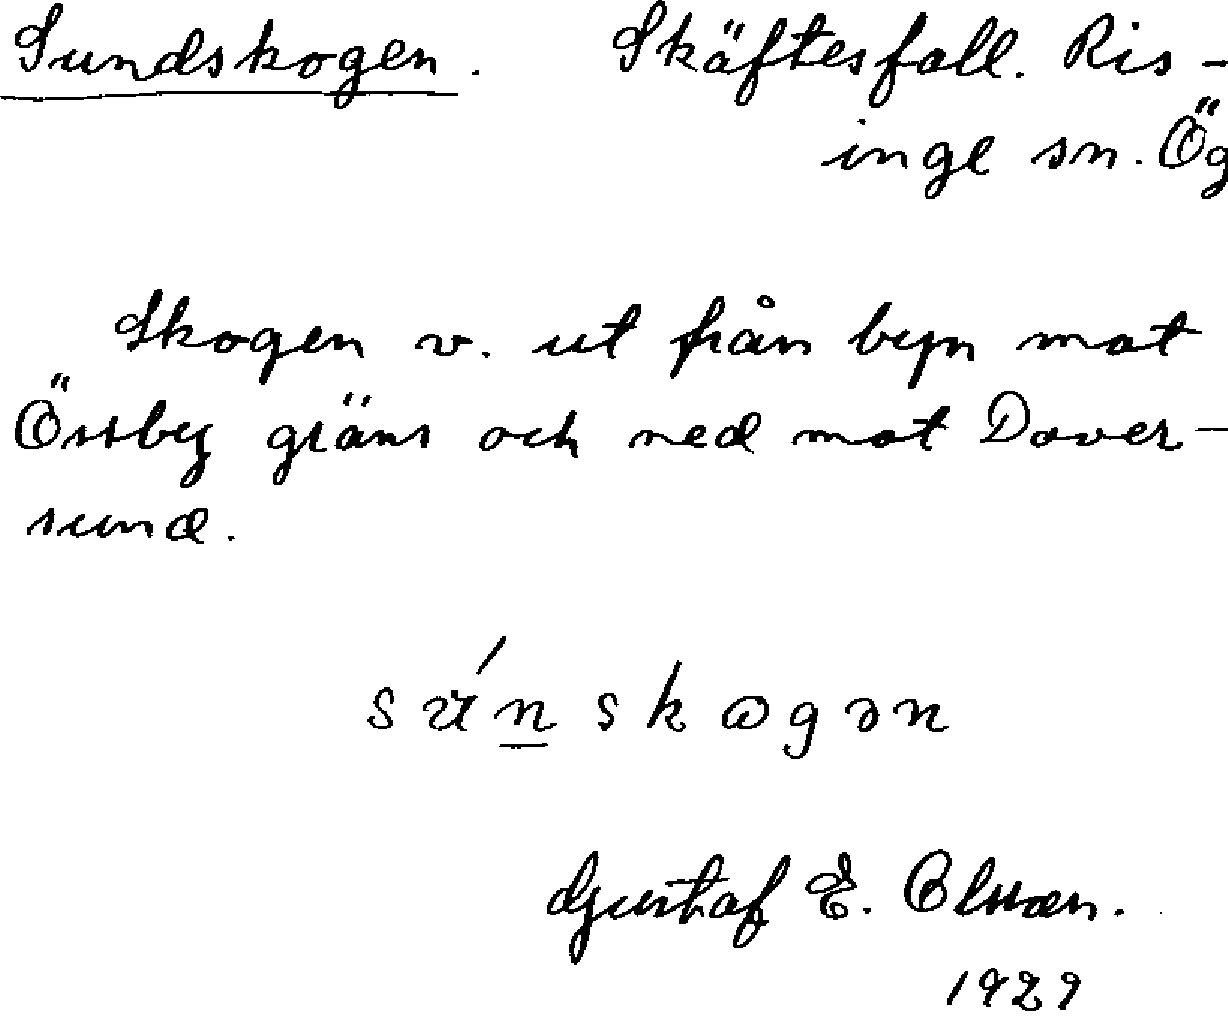 Sundskogen. Skäftesfall. Ris-
inge sn. Ög
Skogen v. ut från byn mot
Össby gräns och ned mot Dover-
sund.
Gustaf E. Olsson.
1929